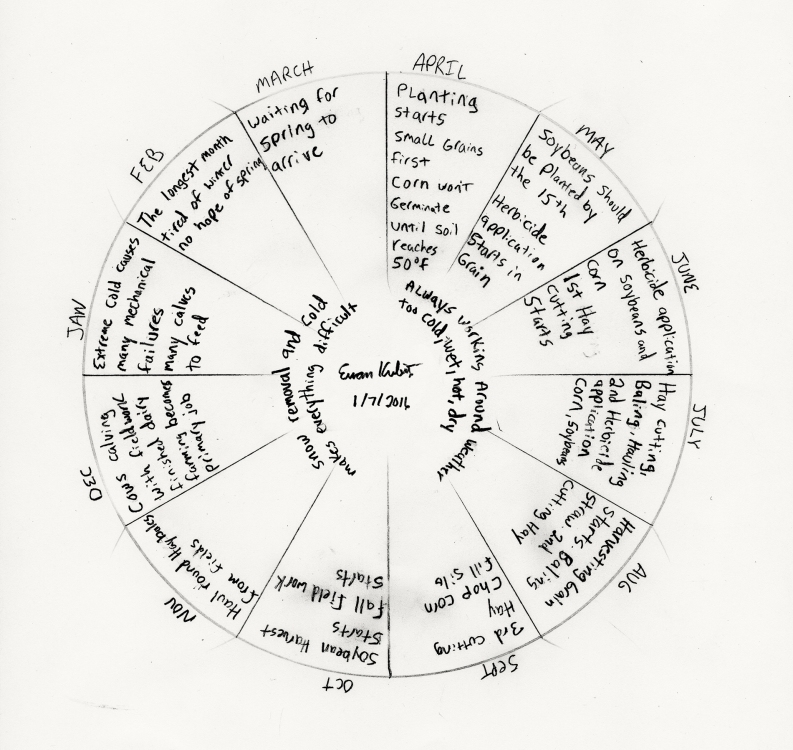 APRIL
Planting
starts
small Grains
first
Corn won't
Germinate
until soil
reaches
50°F
MAY
Soybeans should
be planted by
the 15th
Herbicide
application
starts in
Grain
JUNE
Herbicide application
on soybeans and
corn
1st Hay
cutting
starts
JULY
Hay cutting,
Baling, Hauling
2nd Herbicide
application
Corn, soybeans
AUG
Harvesting Grain
starts. Baling
straw. 2nd
cutting Hay
SEPT
3rd cutting
Hay
Chop corn
fill silo
OCT
Soybean Harvest
starts
fall field work
starts
NOV
Haul round Hay bales
from fields
DEC
Cows calving
with fieldwork
finished dairy
farming becomes
primary job
JAN
Extreme cold causes
many mechanical
failures
many calves
to feed
FEB
The longest month
tired of winter
no hope of spring
MARCH
Waiting for
spring to
arrive
Always working around weather
too cold, wet, hot, dry
snow removal and cold
makes everything difficult
1/7/2016